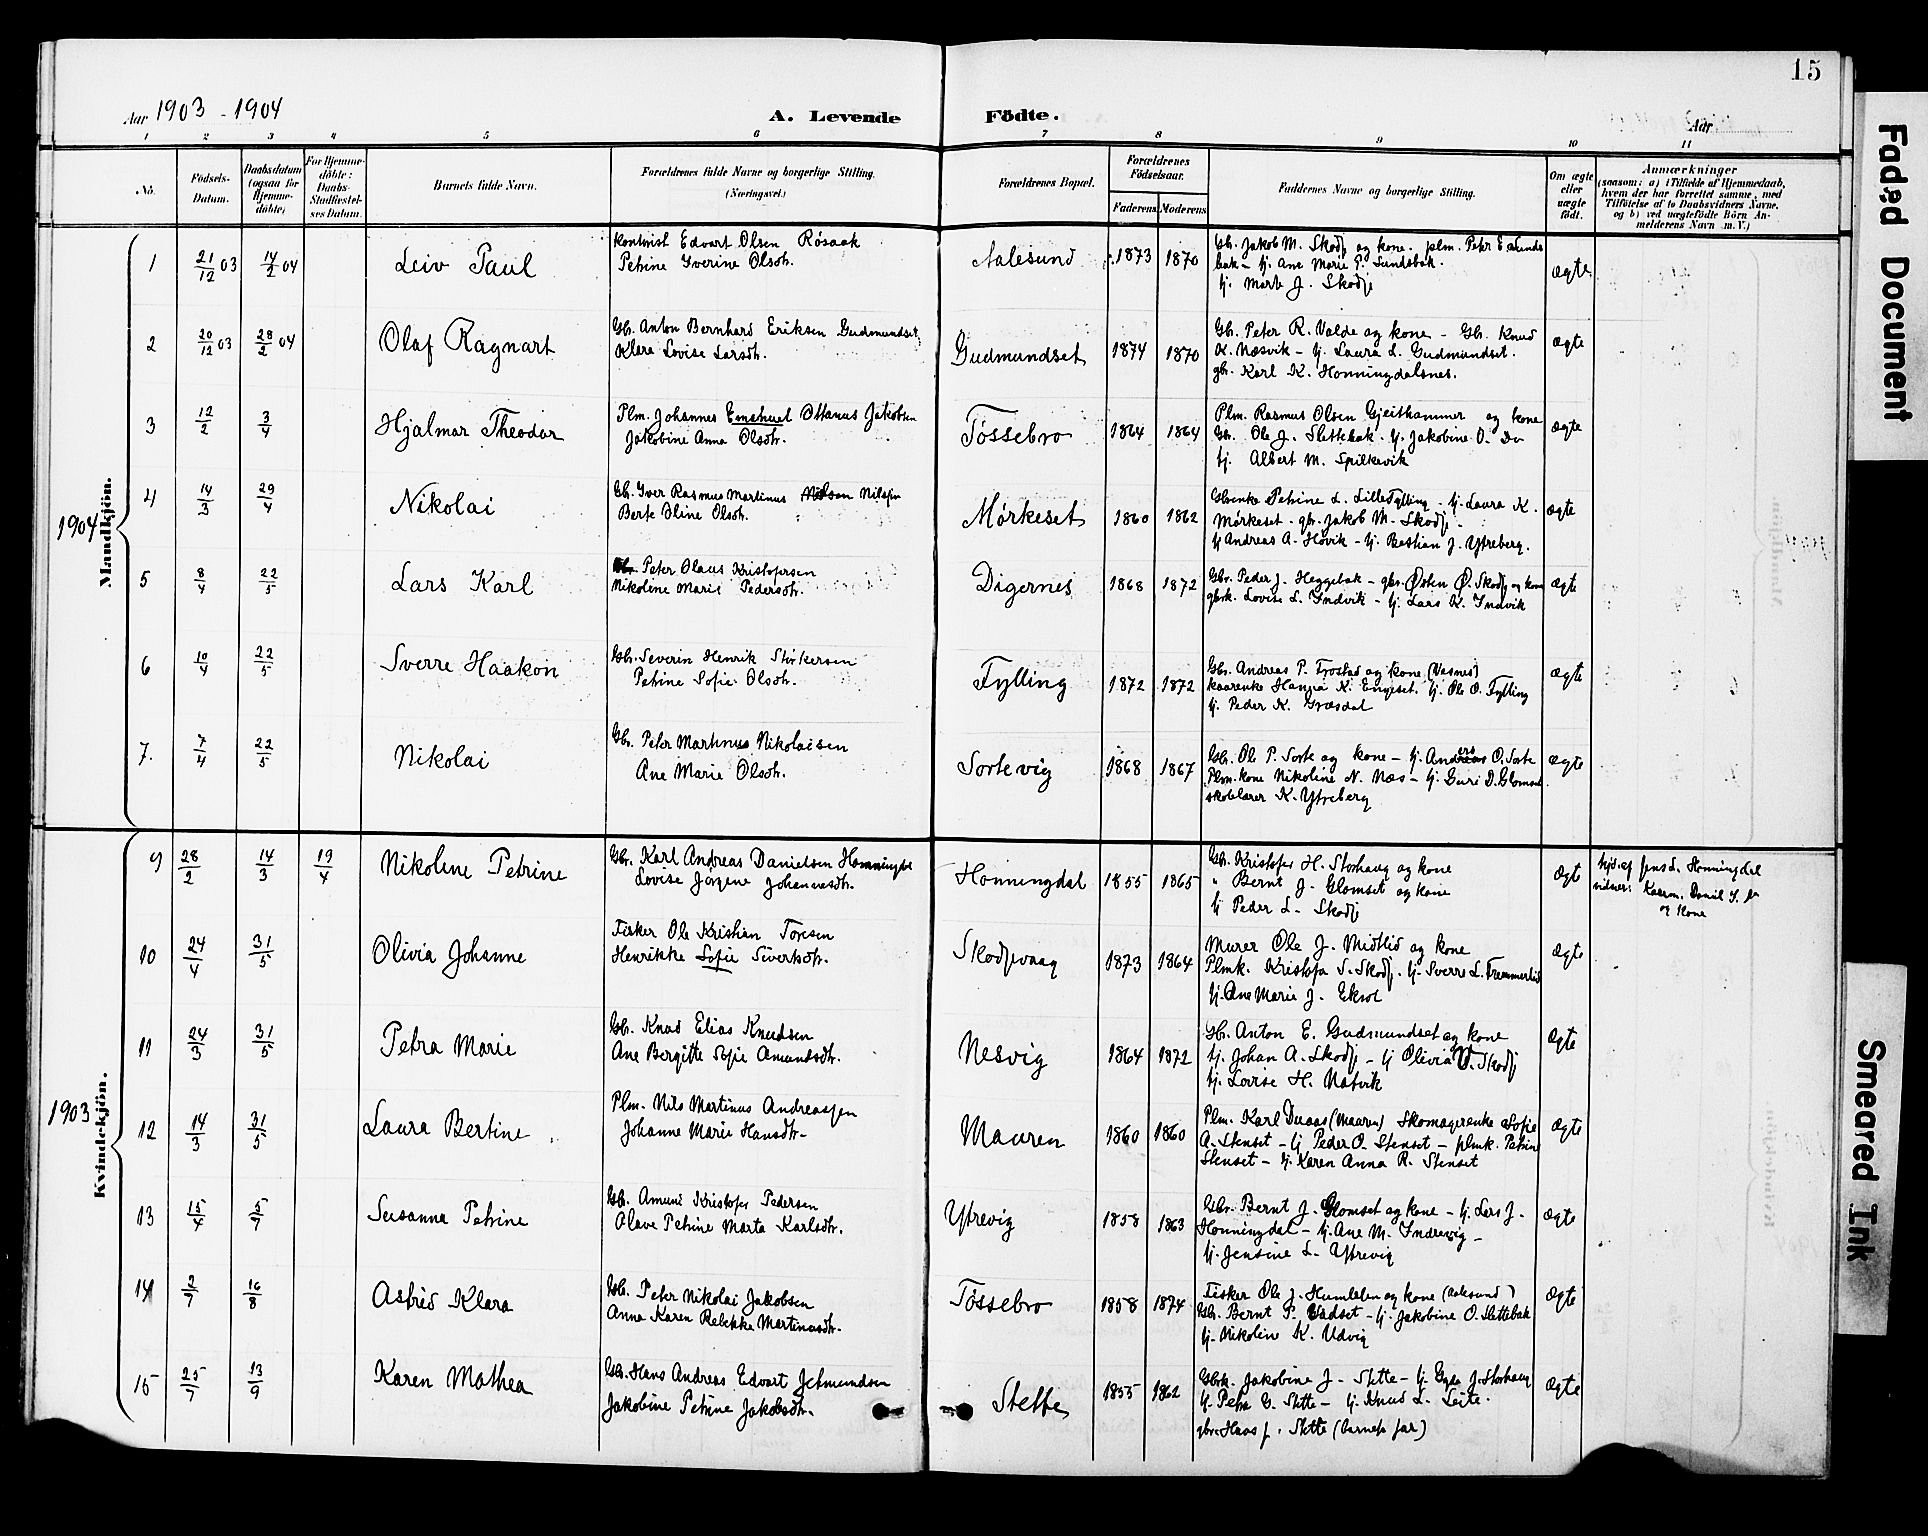 15
Aar 1903 - 1904
A. Levende Födte.
Aar
1 2 3 4 5 6 7 8 9 10 11
No.
Födsels-Datum.
Daabsdatum (ogsaa for Hjemme-döbte)
For Hjemme-döbte: Daabs-Stadfæstel-ses Datum.
Barnets fulde Navn.
Forældrenes fulde Navne og borgerlige Stilling. (Næringsvei.)
Forældrenes Bopæl.
Forældrenes Födselsaar.
Faderens Moderens
Faddernes Navne og borgerlige Stilling.
Om ægte eller uægte födt.
Anmærkninger
(saasom: a) i Tilfælde af Hjemmedaab,
hvem der har forrettet samme, med
Tilföielse af to Daabsvidners Navne.
og b) ved uægtefödte Börn An-
melderens Navn m. V.)
1904 Mandkjön.
1 21/12 03 14/2 04 Leiv Paul
kontorist Edvart Olsen Rösaak
Petrine Iverine Olsdtr.
Aalesund 1873 1870
Gb. Jakob M. Skodj og kone. plm. Petr E Sunds
bak - tj. Ane Marie P. Sundsbak.
tj. Marte J. Skodje
ægte
2 20/12 03 28/2 04 Olaf Ragnart
Gb. Anton Bernhard Eriksen Gudmundset
Klara Lovise Larsdtr.
Gudmundset 1874 1870
Gb. Peter R. Valde og kone - Gb. Knud
K. Næsvik - tj. Laura L. Gudmundset.
gb. Karl K. Honningdalsnes.
ægte
3 12/2 3/4 Hjalmar Theodor
Plm. Johannes Emanuel Ottanus Jakobsen
Jakobine Anna Olsdtr.
Tössebro 1864 1864
Plm. Rasmus Olsen Gjeithammer og kone
Gb. Ole J. Slettebak. tj. Jakobine O. Do
tj. Albert M. Spilkevik
ægte
4 14/3 29/4 Nikolai
Gb. Iver Rasmus Martinus Nilsen
Berte Oline Olsdtr.
Mörkeset 1860 1862
Gbenke Petrine L. Lille Fylling - tj. Laura K.
Mörkeset - gb. Jakob M. Skodj -
tj Andreas A. Hovik - tj. Bastian J. Ytreberg.
ægte
5 8/4 22/5 Lars Karl
Peter Olaus Kristofersen
Nikoline Marie Pedersdtr.
Digernes 1868 1872
Gb. Peder J. Heggebak - gb. Østen Ø. Skodj og kone
gbrk. Lovise L. Indvik - tj. Lars K. Indvik
ægte
6 10/4 22/5 Sverre Haakon
Gb. Severin Henrik Styrkersen
Petrine Sofie Olsdtr.
Fylling 1872 1872
Gb. Andreas P. Frostad og kone (Vasnes)
kaarenke Hanna K. Engeset. tj. Ole O. Fylling
tj. Peder K. Græsdal
ægte
7. 7/4 22/5 Nikolai
Gb. Peter Martinus Nikolaisen
Ane Marie Olsdtr.
Sortevig 1868 1867
Gb. Ole P. Sorte og kone - tj. Anders O. Sorte
Plm. kone Nikoline N. Næs - tj. Guri D. Glomset
skolelærer K. Ytreberg
ægte
1903 Kvindekjön.
9 28/2 14/3 19/4 Nikoline Petrine
Gb. Karl Andreas Danielsen Honningdal
Lovise Jørgine Johannesdtr.
Honningdal 1855 1865
Gb. Kristofer H. Storhaug og kone
" Bernt J. Glomset og kone
tj Peder L. Skodj
ægte
hjd. af Jens L. Honningdal
vidner: Kaarm. Daniel
og kone
10 24/4 31/5 Olivia Johanne
Fisker Ole Kristian Toresen
Henrikke Sofie Sivertsdtr.
Skodjevaag 1873 1864
Murer Ole J. Midtlid og kone
Plmk. Kristofa S. Skodj. tj. Sverre L. Fremmerlid
tj. Ane Marie J. Eksol
ægte
11 24/3 31/5 Petra Marie
Gb. Knud Elias Knudsen
Ane Bergitte Sofie Amundsdtr.
Nesvig 1864 1872
Gb. Anton E. Gudmundset og kone
tj. Johan A. Skodj - tj Olivia V. Skodj
tj. Lovise H. Nesvik
ægte
12 14/3 31/5 Laura Bertine
Plm. Nils Martinus Andreassen
Johanne Marie Hansdtr.
Mauren 1860 1860
Plm. Karl Duaas (Mauren) Skomagerenke Sofie
A. Stenset - tj Peder O. Stenset - plmk. Petrine
Stenset - tj. Karen Anna R. Stenset
ægte
13 15/4 5/7 Susanna Petrine
Gb. Amund Kristofer Pedersen
Olave Petrine Marta Karlsdtr.
Ytrevig 1858 1863
Gb. Bernt J. Glomset og kone - tj. Lars J.
Honningdal - tj. Ane M. Indrevig -
tj. Jensine L. Ytrevig
ægte
14 2/7 16/8 Astrid Klara
Gb. Peter Nikolai Jakobsen
Anna Karen Rebekka Martinusdtr.
Tössebro 1858 1874
Fisker Ole J. Humlelen og kone (Aalesund)
Gb. Bernt P. Vadset - tj. Jakobine O. Slettebak
tj. Nikoline K. Udvig
ægte
15 25/7 13/9 Karen Mathea
Gb. Hans Andreas Edvart Jetmundsen
Jakobine Petrine Jakobsdtr.
Slette 1855 1862
Gbrk. Jakobine J. Slette - tj. Gyda J. Storhaug
tj. Petra G. Slette - tj. Knud L. Leite.
gbr. Hans J. Slette (barnets far)
ægte
Faded Document
Smeared Ink